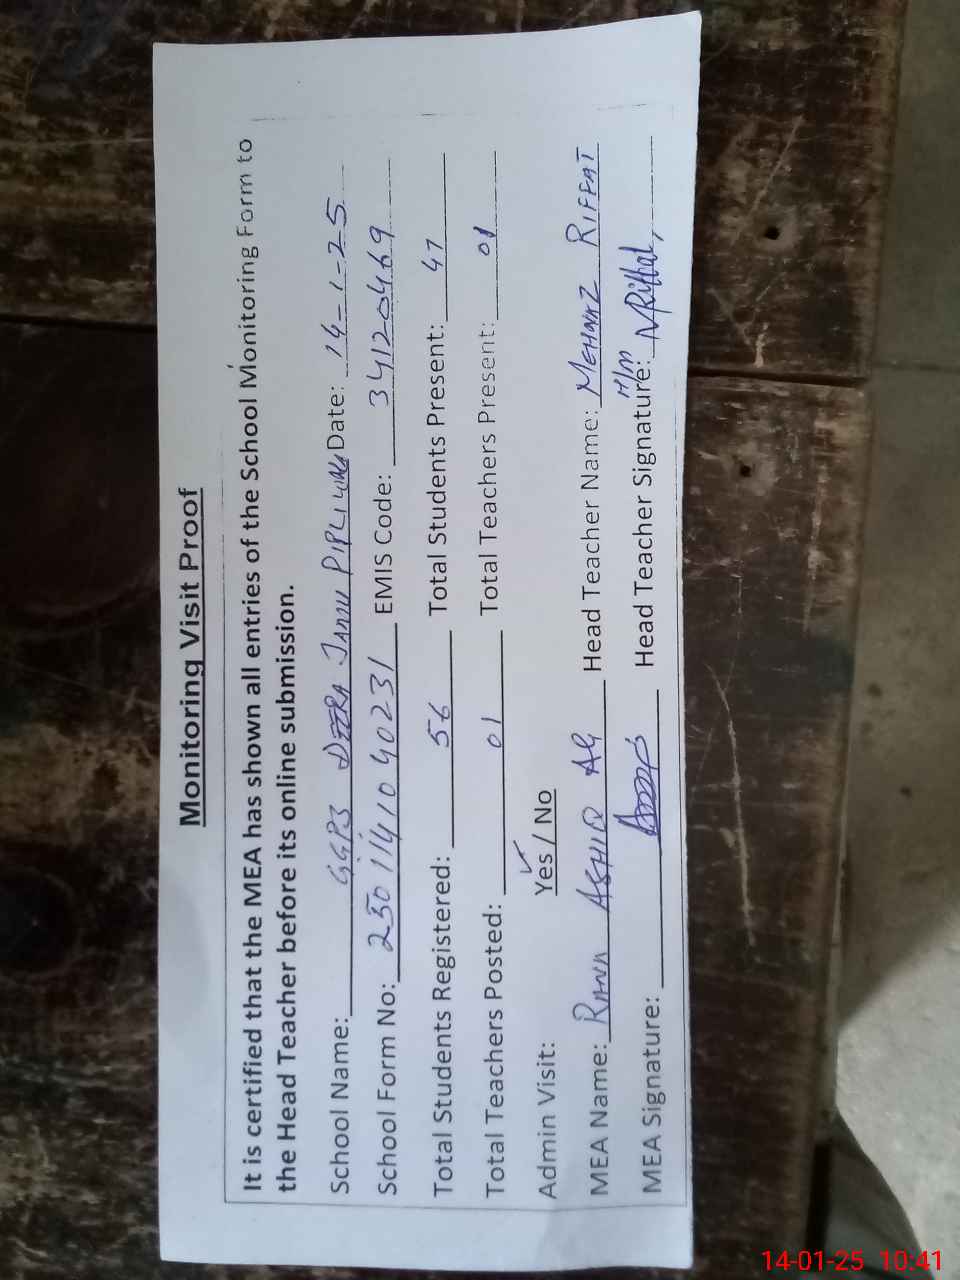 Monitoring Visit Proof
It is certified that the MEA has shown all entries of the School Monitoring Form to
the Head Teacher before its online submission.
School Name: GGPS DEERA JANDU PIPLI WALA Date: 14-1-25
School Form No: 2501141040231 EMIS Code: 34120469
Total Students Registered: 56 Total Students Present: 47
Total Teachers Posted: 01 Total Teachers Present: 01
Admin Visit: Yes / No
MEA Name: RANA ASHIQ Ali Head Teacher Name: MEHNAZ RIFFAT
MEA Signature: Head Teacher Signature: H/M MRiffat
14-01-25 10:41